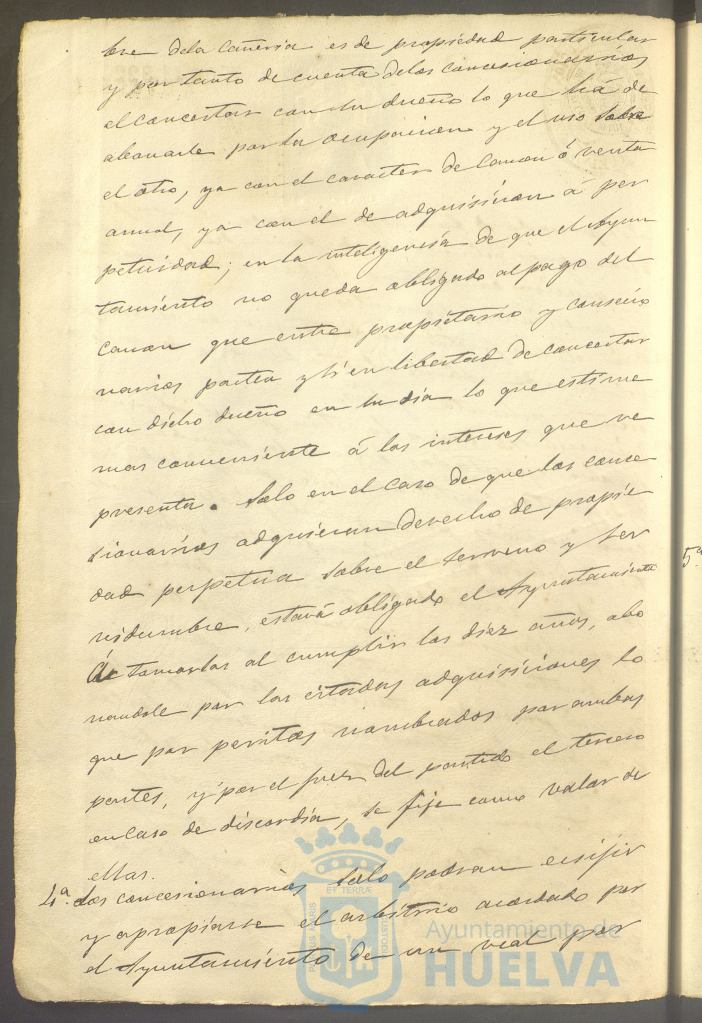 bre dela cañeria es de propiedad particular
y por tanto de cuenta delos concesionarios
el concertar con su dueño lo que há de
abonarle por la ocupacion y el uso sobre
el otro, ya con el caracter de Canon ó renta
anual, ya con el de adquisision á per
petuidad; en la inteligensia de que el Ayun
tamiento no queda obligado al pago del
canon que entre propietario y concecio
narios pacten y si en libertad de concertar
con dicho dueño en su dia lo que estime
mas conveniente á los intereses que re
presenta. Solo en el caso de que los conce
sionarios adquieran derecho de propie
dad perpetua sobre el terreno y ser
vidumbre, estará obligado el Ayuntamiento
á tomarlas al cumplir los diez años, abo
nandole por las citadas adquisiciones lo
que por peritos nombrados por ambas
partes, y por el juez del partido el tercero
en caso de discordia, se fije como valor de
ellas.
4ª Los concesionarios solo podran ecsijir
y apropiarse el arbitrio acordado por
el Ayuntamiento de un real por
5ª
ET TERRAE
PORTUS MARIS
CUSTODIA
Ayuntamiento de
HUELVA